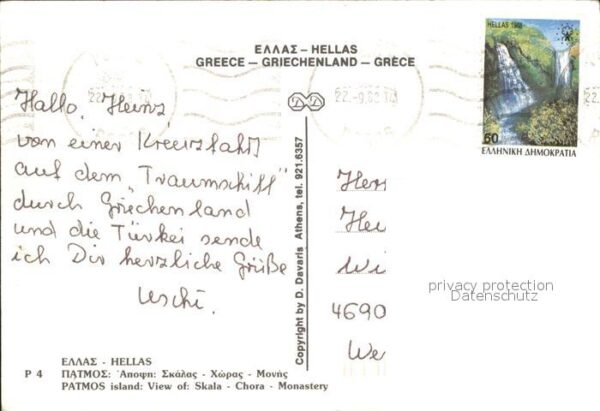 ΕΛΛΑΣ – HELLAS
GREECE – GRIECHENLAND – GRÈCE
HELLAS 1988
60
ΕΛΛΗΝΙΚΗ ΔΗΜΟΚΡΑΤΙΑ
Hallo, Heinz
von einer Kreuzfahrt
auf dem "Traumschiff"
durch Griechenland
und die Türkei sende
ich Dir herzliche Grüße
Uschi.
Copyright by D. Davaris Athens, tel. 921.6357
Herr
Hei
Wi
4690
We
privacy protection
Datenschutz
ΕΛΛΑΣ - HELLAS
P 4 ΠΑΤΜΟΣ: Ἄποψη: Σκάλας - Χώρας - Μονής
PATMOS island: View of: Skala - Chora - Monastery